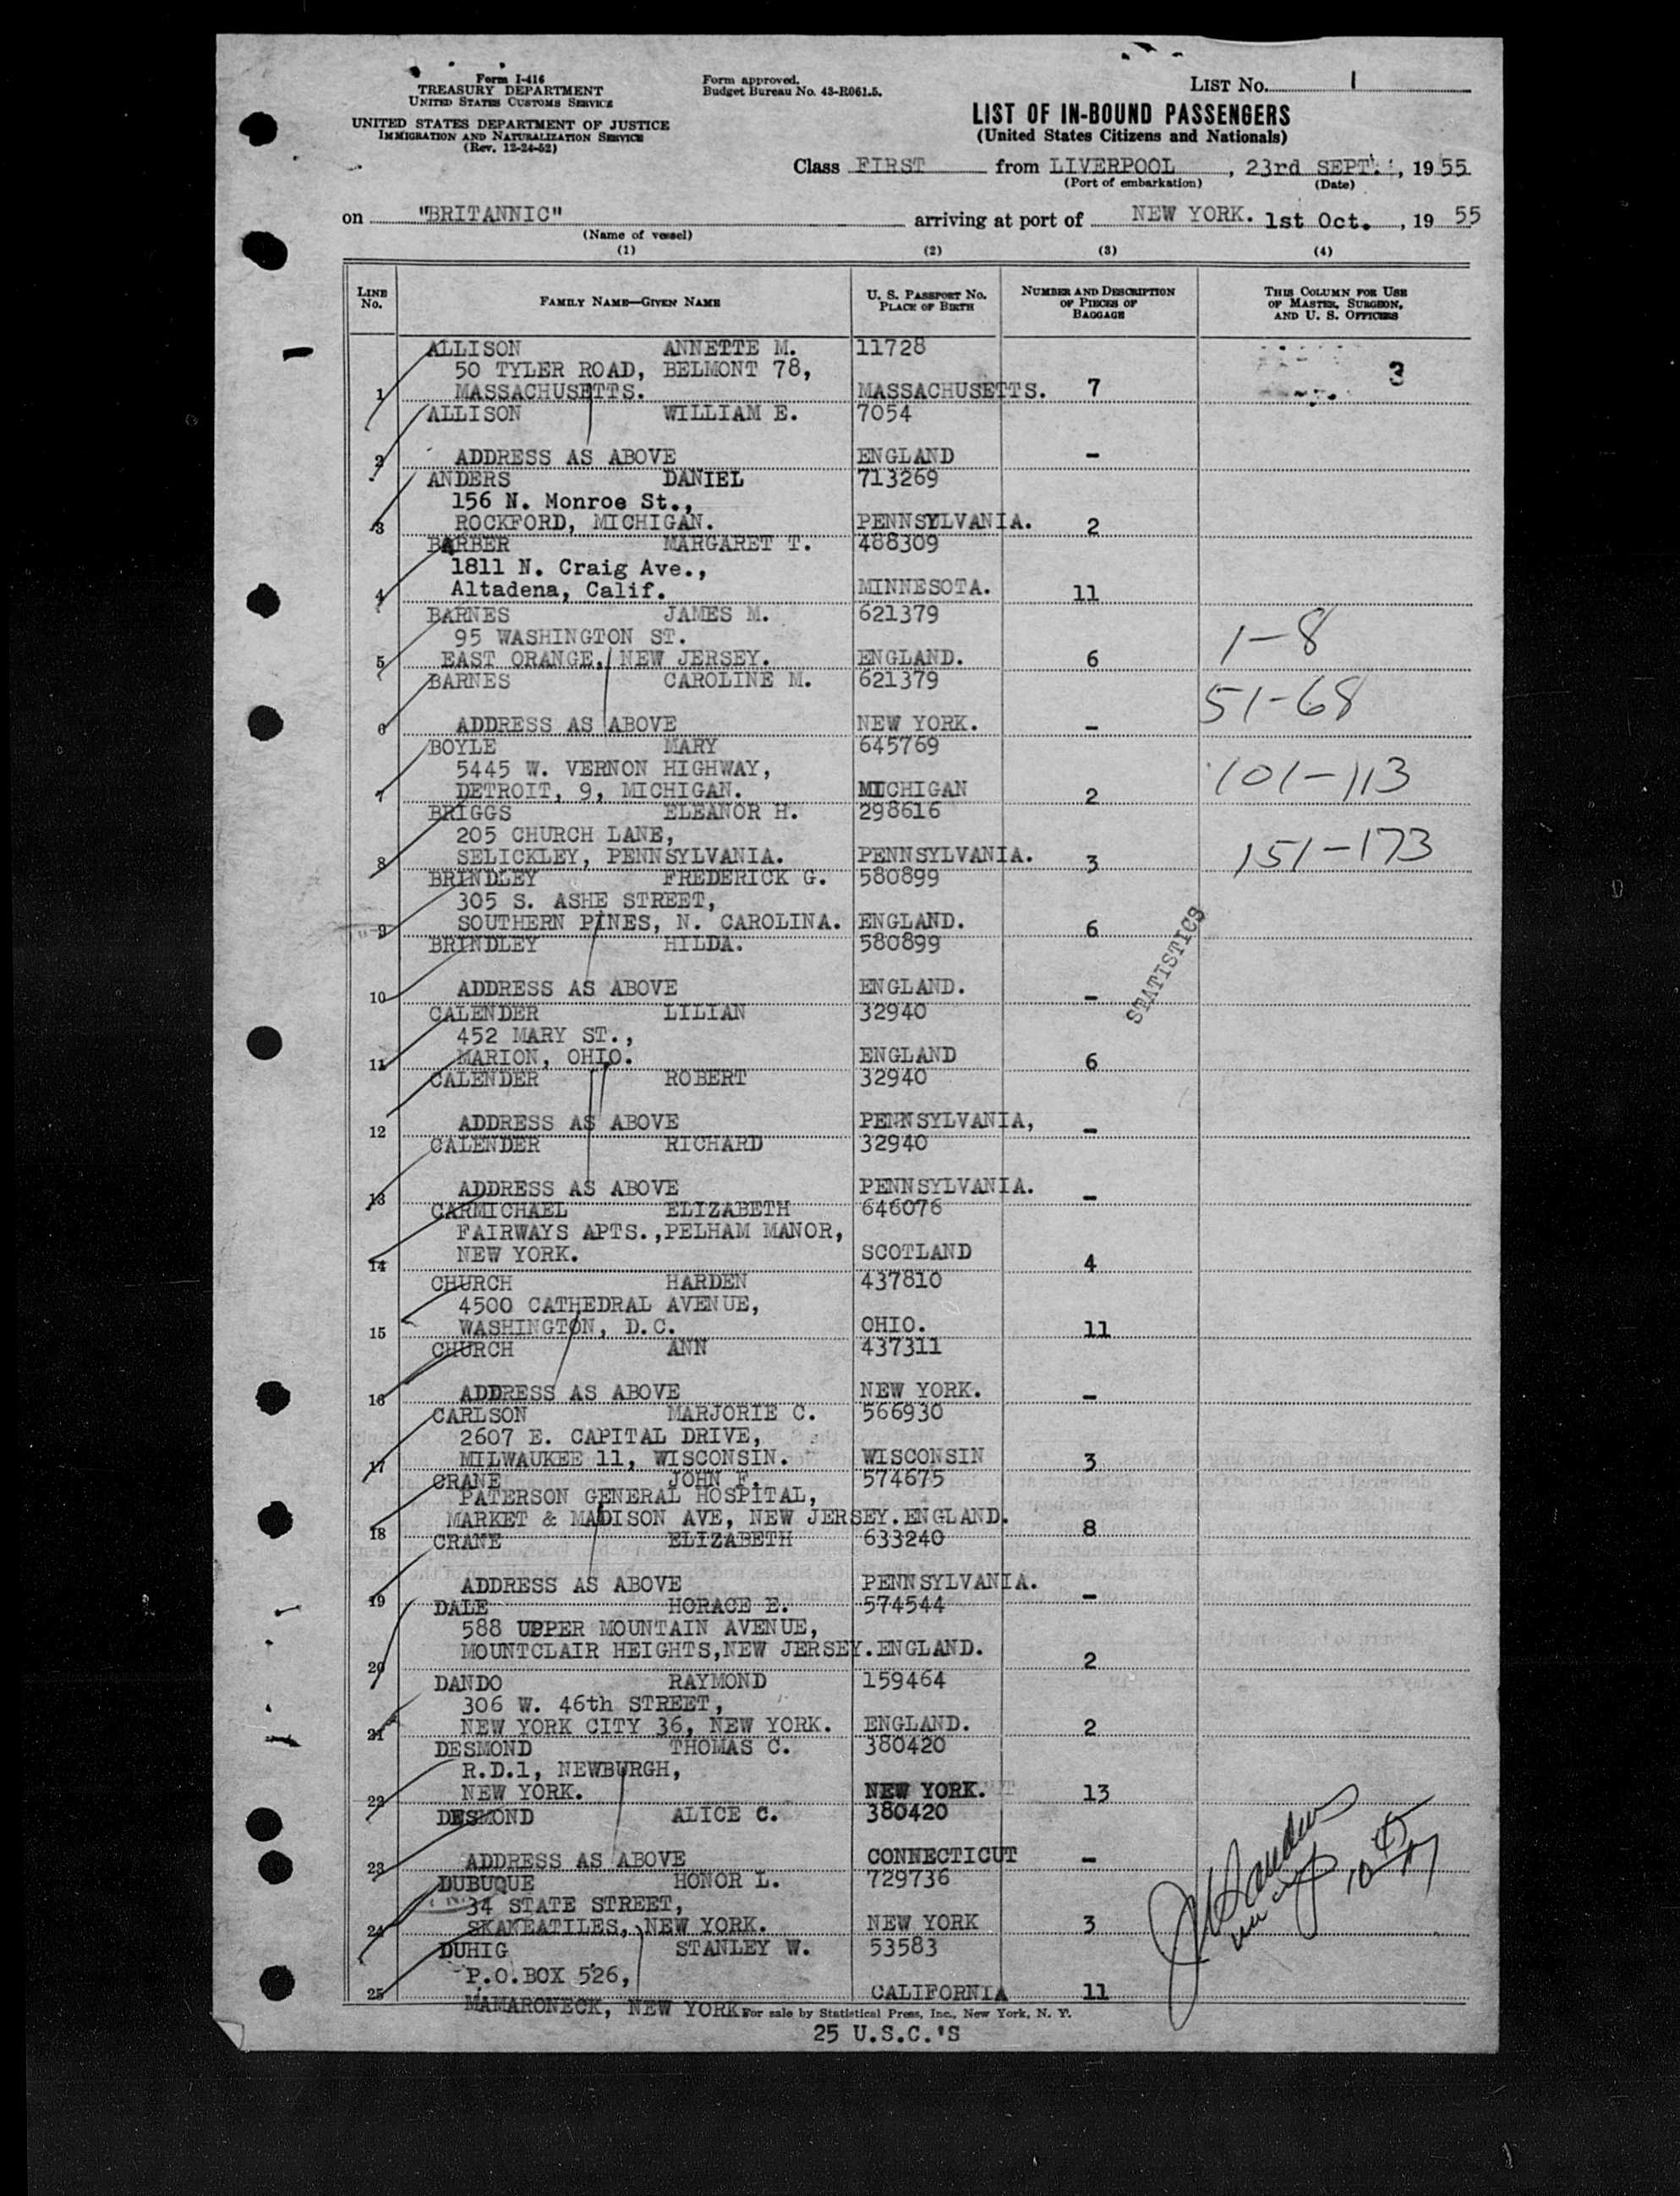 Form I-416
TREASURY DEPARTMENT
UNITED STATES CUSTOMS SERVICE
UNITED STATES DEPARTMENT OF JUSTICE
IMMIGRATION AND NATURALIZATION SERVICE
(Rev. 12-24-52)
Form approved.
Budget Bureau No. 43-R061.5.
LIST No. 1
LIST OF IN-BOUND PASSENGERS
(United States Citizens and Nationals)
Class FIRST from LIVERPOOL, 23rd SEPT., 1955
(Port of embarkation) (Date)
on "BRITANNIC" arriving at port of NEW YORK. 1st Oct., 1955
(Name of vessel)
(1) (2) (3) (4)
LINE No. FAMILY NAME—GIVEN NAME U. S. PASSPORT No. PLACE OF BIRTH NUMBER AND DESCRIPTION OF PIECES OF BAGGAGE THIS COLUMN FOR USE OF MASTER, SURGEON, AND U. S. OFFICERS
ALLISON ANNETTE M. 11728
50 TYLER ROAD, BELMONT 78, 3
1 MASSACHUSETTS. MASSACHUSETTS. 7
ALLISON WILLIAM E. 7054
2 ADDRESS AS ABOVE ENGLAND -
ANDERS DANIEL 713269
156 N. Monroe St.,
3 ROCKFORD, MICHIGAN. PENNSYLVANIA. 2
BARBER MARGARET T. 488309
1811 N. Craig Ave.,
4 Altadena, Calif. MINNESOTA. 11
BARNES JAMES M. 621379
95 WASHINGTON ST. 1-8
5 EAST ORANGE, NEW JERSEY. ENGLAND. 6
BARNES CAROLINE M. 621379
51-68
6 ADDRESS AS ABOVE NEW YORK. -
BOYLE MARY 645769
5445 W. VERNON HIGHWAY, 101-113
7 DETROIT, 9, MICHIGAN. MICHIGAN 2
BRIGGS ELEANOR H. 298616
205 CHURCH LANE, 151-173
8 SELICKLEY, PENNSYLVANIA. PENNSYLVANIA. 3
BRINDLEY FREDERICK G. 580899
305 S. ASHE STREET,
9 SOUTHERN PINES, N. CAROLINA. ENGLAND. 6
STATISTICS
BRINDLEY HILDA. 580899
10 ADDRESS AS ABOVE ENGLAND. -
CALENDER LILIAN 32940
452 MARY ST.,
11 MARION, OHIO. ENGLAND 6
CALENDER ROBERT 32940
12 ADDRESS AS ABOVE PENNSYLVANIA, -
CALENDER RICHARD 32940
13 ADDRESS AS ABOVE PENNSYLVANIA. -
CARMICHAEL ELIZABETH 646076
FAIRWAYS APTS.,PELHAM MANOR,
14 NEW YORK. SCOTLAND 4
CHURCH HARDEN 437810
4500 CATHEDRAL AVENUE,
15 WASHINGTON, D.C. OHIO. 11
CHURCH ANN 437311
16 ADDRESS AS ABOVE NEW YORK. -
CARLSON MARJORIE C. 566930
2607 E. CAPITAL DRIVE,
17 MILWAUKEE 11, WISCONSIN. WISCONSIN 3
CRANE JOHN F. 574675
PATERSON GENERAL HOSPITAL,
18 MARKET & MADISON AVE, NEW JERSEY. ENGLAND. 8
CRANE ELIZABETH 633240
19 ADDRESS AS ABOVE PENNSYLVANIA. -
DALE HORACE E. 574544
588 UPPER MOUNTAIN AVENUE,
20 MOUNTCLAIR HEIGHTS,NEW JERSEY. ENGLAND. 2
DANDO RAYMOND 159464
306 W. 46th STREET,
21 NEW YORK CITY 36, NEW YORK. ENGLAND. 2
DESMOND THOMAS C. 380420
R.D.1, NEWBURGH,
22 NEW YORK. NEW YORK. 13
DESMOND ALICE C. 380420
23 ADDRESS AS ABOVE CONNECTICUT -
DUBUQUE HONOR L. 729736
34 STATE STREET,
24 SKAKEATILES, NEW YORK. NEW YORK 3
DUHIG STANLEY W. 53583
P.O.BOX 526,
25 CALIFORNIA 11
MAMARONECK, NEW YORK For sale by Statistical Press, Inc., New York, N. Y.
25 U.S.C.'S